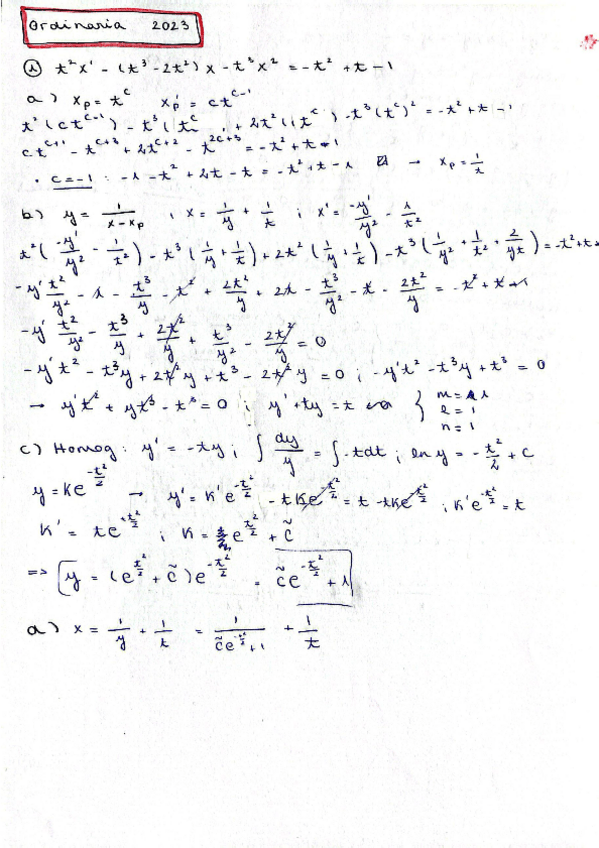 Ordinaria 2023
① t²x' - (t³ - 2t²)x - t³x² = -t² + t - 1
a) x_p = t^c x_p' = ct^(c-1)
t²(ct^(c-1)) - t³(t^c) + 2t²(t^c) - t³(t^c)² = -t² + t - 1
ct^(c+1) - t^(c+3) + 2t^(c+2) - t^(2c+3) = -t² + t - 1
· c = -1 : -1 - t² + 2t - t = -t² + t - 1 ☑ → x_p = 1/t
b) y = 1/(x - x_p) ; x = 1/y + 1/t ; x' = -y'/y² - 1/t²
t²(-y'/y² - 1/t²) - t³(1/y + 1/t) + 2t²(1/y + 1/t) - t³(1/y² + 1/t² + 2/yt) = -t² + t -
-y't²/y² - 1 - t³/y - t² + 2t²/y + 2t - t³/y² - t - 2t²/y = -t² + t - 1
-y' t²/y² - t³/y + 2t²/y + t³/y² - 2t²/y = 0
-y't² - t³y + 2t²y + t³ - 2t²y = 0 ; -y't² - t³y + t³ = 0
→ y't² + yt³ - t³ = 0 ; y' + ty = t { m = 1 l = 1 n = 1
c) Homog: y' = -ty ; ∫ dy/y = ∫ -t dt ; ln y = -t²/2 + C
y = Ke^(-t²/2) → y' = K'e^(-t²/2) - tKe^(-t²/2) = t - tKe^(-t²/2) ; K'e^(-t²/2) = t
K' = te^(t²/2) ; K = e^(t²/2) + c̃
=> y = (e^(t²/2) + c̃)e^(-t²/2) = c̃e^(-t²/2) + 1
a) x = 1/y + 1/t = 1/(c̃e^(-t²/2) + 1) + 1/t